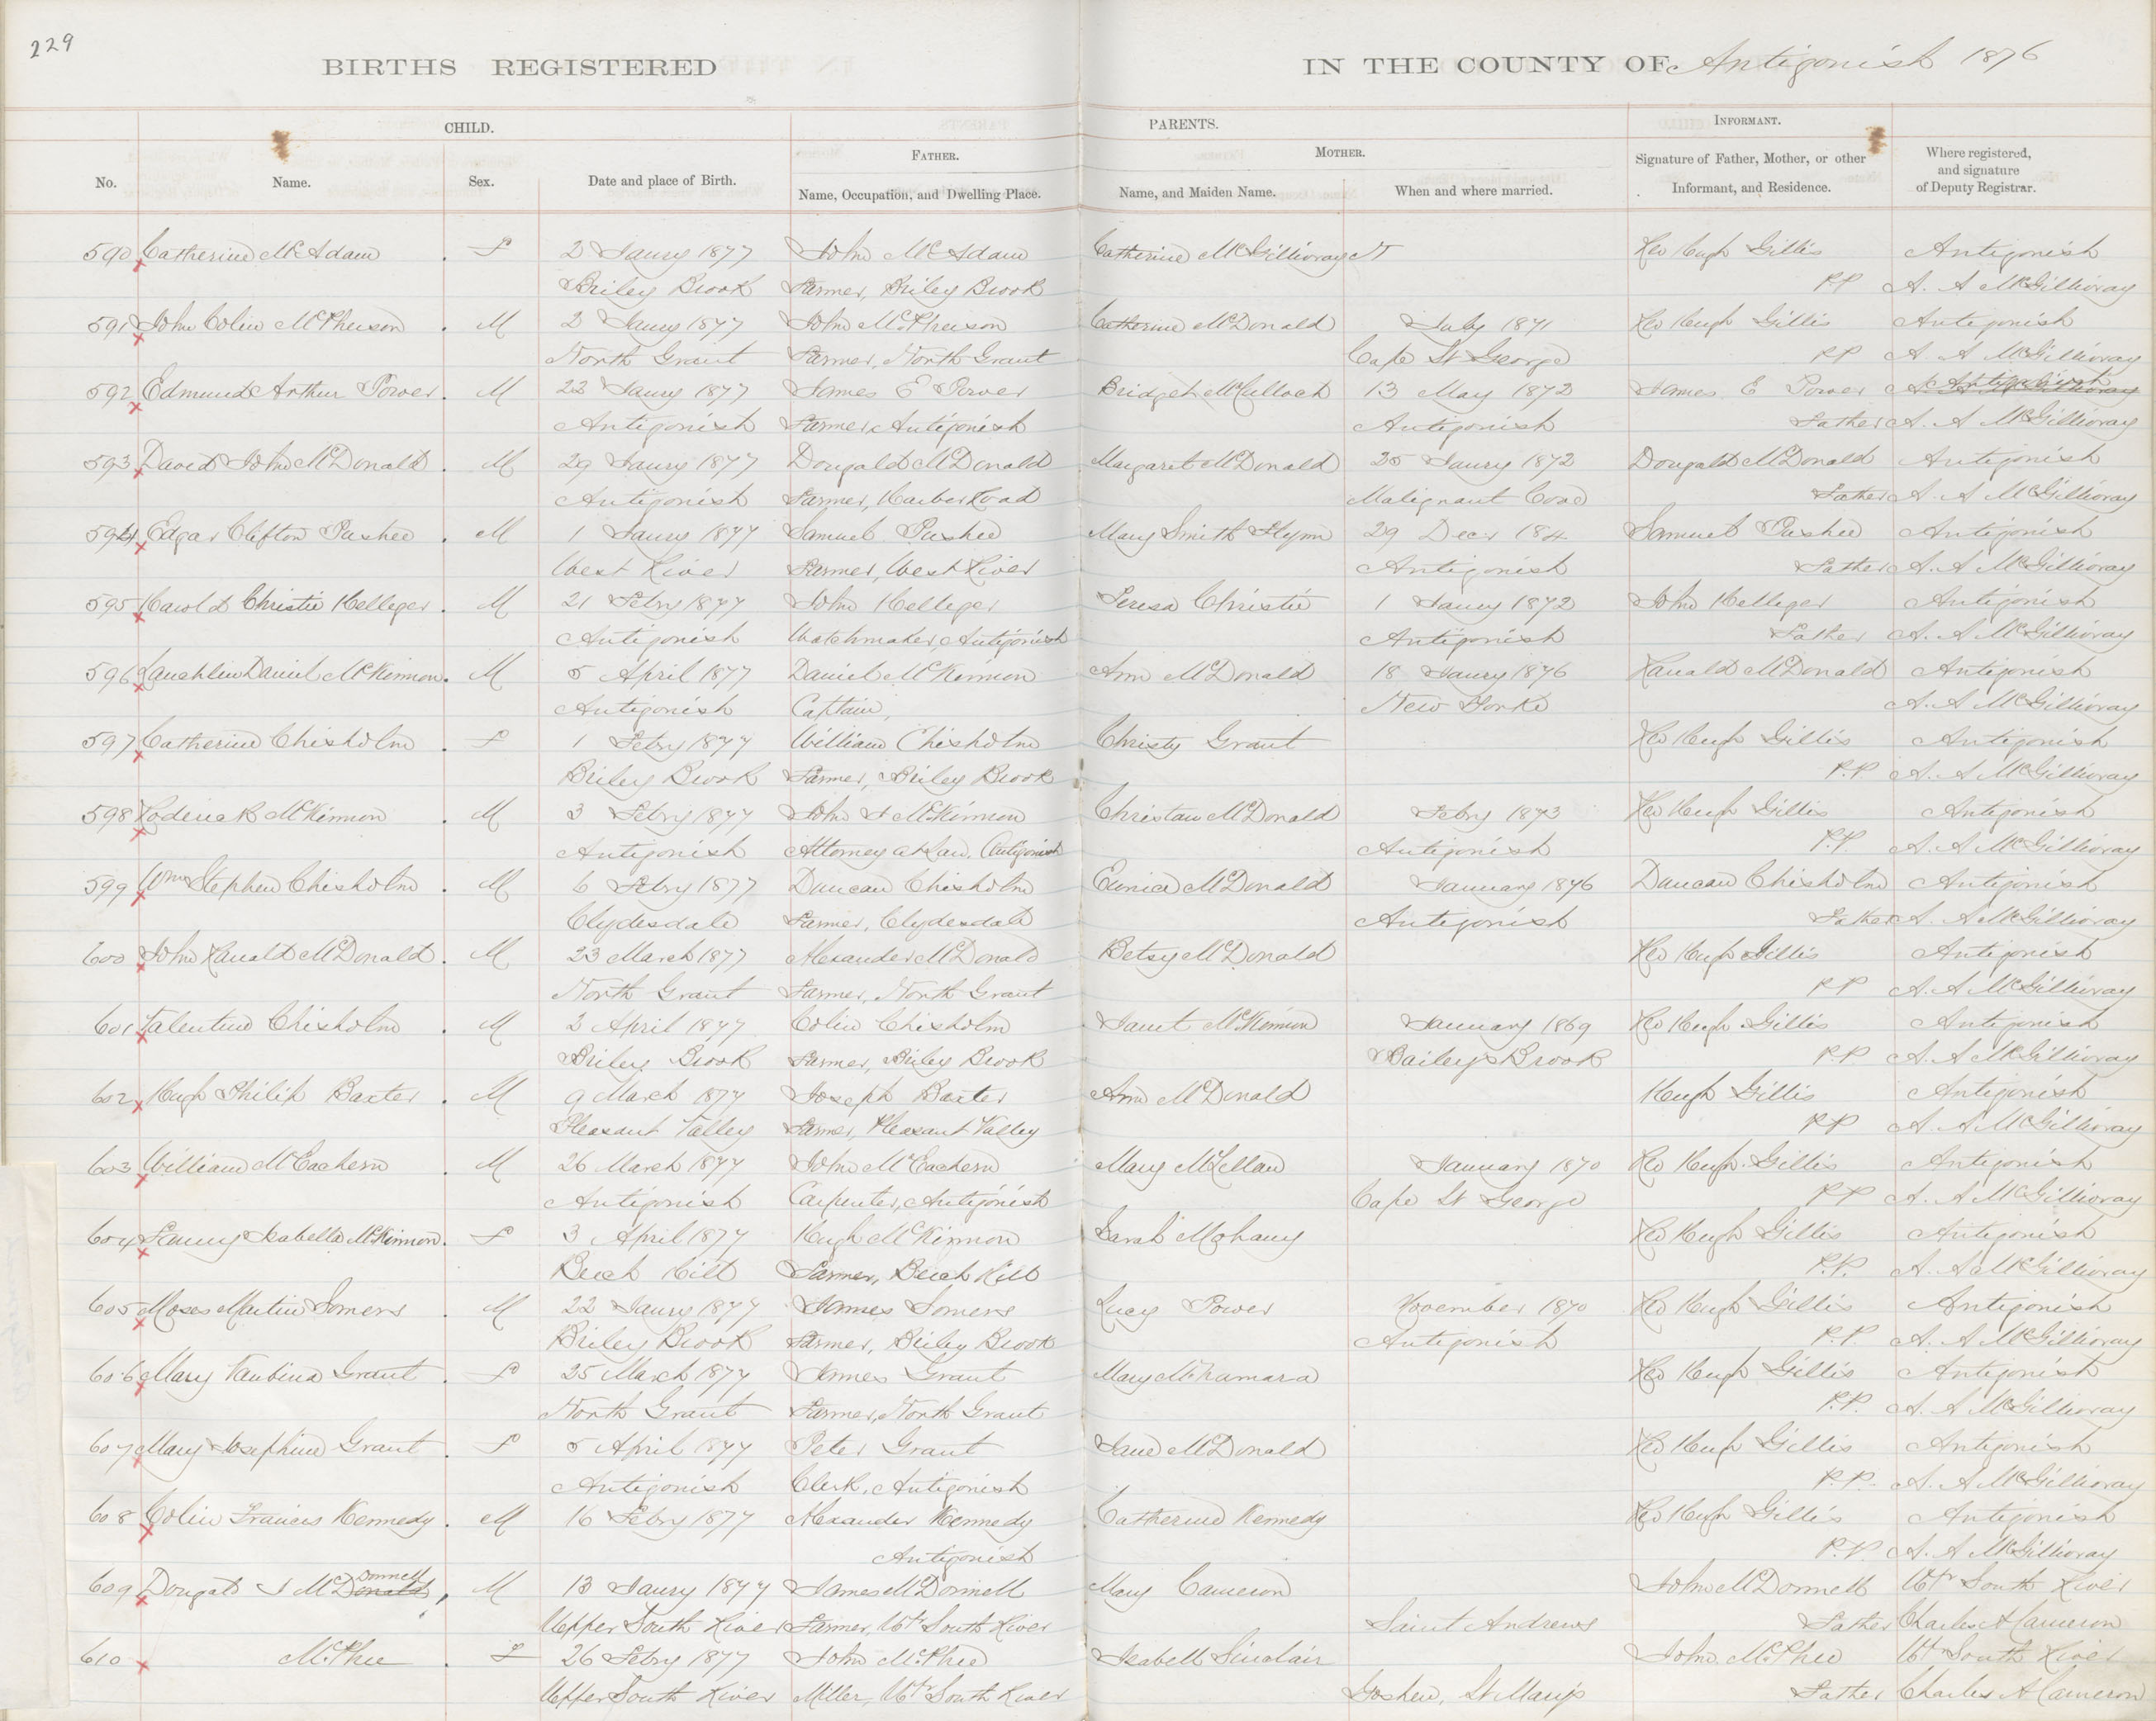 229
BIRTHS REGISTERED IN THE COUNTY OF Antigonish 1876
CHILD. PARENTS. INFORMANT.
FATHER. MOTHER.
No. Name. Sex. Date and place of Birth. Name, Occupation, and Dwelling Place. Name, and Maiden Name. When and where married. Signature of Father, Mother, or other Informant, and Residence. Where registered, and signature of Deputy Registrar.
590 Catherine McAdam F 2 Jany 1877 John McAdam Catherine McGillivray Rev Hugh Gillis Antigonish
Briley Brook Farmer, Briley Brook PP A. A McGillivray
591 John Colin McPherson M 2 Jany 1877 John McPherson Catherine McDonald July 1871 Rev Hugh Gillis Antigonish
North Grant Farmer, North Grant Cape St George PP A. A McGillivray
592 Edmund Arthur Power M 22 Jany 1877 James E Power Bridget McCulloch 13 May 1872 James E Power Antigonish
Antigonish Farmer, Antigonish Antigonish Father A. A McGillivray
593 David John McDonald M 29 Jany 1877 Dougald McDonald Margaret McDonald 25 Jany 1872 Dougald McDonald Antigonish
Antigonish Farmer, Harbor Road Malignant Cove Father A. A McGillivray
594 Edgar Clifton Pushee M 1 Jany 1877 Samuel Pushee Mary Smith Flynn 29 Decr 184 Samuel Pushee Antigonish
West River Farmer, West River Antigonish Father A. A McGillivray
595 Harold Christie Helleger M 21 Febry 1877 John Helleger Teresa Christie 1 Jany 1872 John Helleger Antigonish
Antigonish Watchmaker, Antigonish Antigonish Father A. A McGillivray
596 Lauchlin Daniel McKinnon M 5 April 1877 Daniel McKinnon Ann McDonald 18 Jany 1876 Ranald McDonald Antigonish
Antigonish Captain, New York A. A McGillivray
597 Catherine Chisholm F 1 Febry 1877 William Chisholm Christy Grant Rev Hugh Gillis Antigonish
Briley Brook Farmer, Briley Brook P.P. A. A McGillivray
598 Roderick McKinnon M 3 Febry 1877 John McKinnon McDonald Febry 1873 Rev Hugh Gillis Antigonish
Antigonish Attorney at Law, Antigonish Antigonish P.P. A. A McGillivray
599 Wm Stephen Chisholm M 6 Febry 1877 Duncan Chisholm Eunice McDonald January 1876 Duncan Chisholm Antigonish
Clydesdale Farmer, Clydesdale Antigonish Father A. A McGillivray
600 John Ranald McDonald M 23 March 1877 Alexander McDonald Betsy McDonald Rev Hugh Gillis Antigonish
North Grant Farmer, North Grant PP A. A McGillivray
601 Valentine Chisholm M 2 April 1877 Colin Chisholm Janet McKinnon January 1869 Rev Hugh Gillis Antigonish
Briley Brook Farmer, Briley Brook Bailey's Brook P.P. A. A McGillivray
602 Hugh Philip Baxter M 9 March 1877 Joseph Baxter Ann McDonald Hugh Gillis Antigonish
Pleasant Valley Farmer, Pleasant Valley PP A. A McGillivray
603 William McEachern M 26 March 1877 John McEachern Mary McLellan January 1870 Rev Hugh Gillis Antigonish
Antigonish Carpenter, Antigonish Cape St George PP A. A McGillivray
604 Fanny Isabella McKinnon F 3 April 1877 Hugh McKinnon Sarah Mahany Rev Hugh Gillis Antigonish
Beech Hill Farmer, Beech Hill P.P. A. A McGillivray
605 Moses Martin Somers M 22 Jany 1877 James Somers Lucy Power November 1870 Rev Hugh Gillis Antigonish
Briley Brook Farmer, Briley Brook Antigonish P.P. A. A McGillivray
606 Mary Grant F 25 March 1877 James Grant Mary McNamara Rev Hugh Gillis Antigonish
North Grant Farmer, North Grant P.P. A. A McGillivray
607 Mary Josephine Grant F 5 April 1877 Peter Grant Jane McDonald Rev Hugh Gillis Antigonish
Antigonish Clerk, Antigonish P.P. A. A McGillivray
608 Colin Francis Kennedy M 16 Febry 1877 Alexander Kennedy Catherine Kennedy Rev Hugh Gillis Antigonish
Antigonish P.P. A. A McGillivray
609 Dougald J McDonald Donnell M 13 Jany 1877 James McDonnell Mary Cameron John McDonnell Upr South River
Upper South River Farmer, Upr South River Saint Andrews Father Charles A Cameron
610 McPhee F 26 Febry 1877 John McPhee Isabell Sinclair John McPhee Upr South River
Upper South River Miller, Upr South River Goshen, St Mary's Father Charles A Cameron